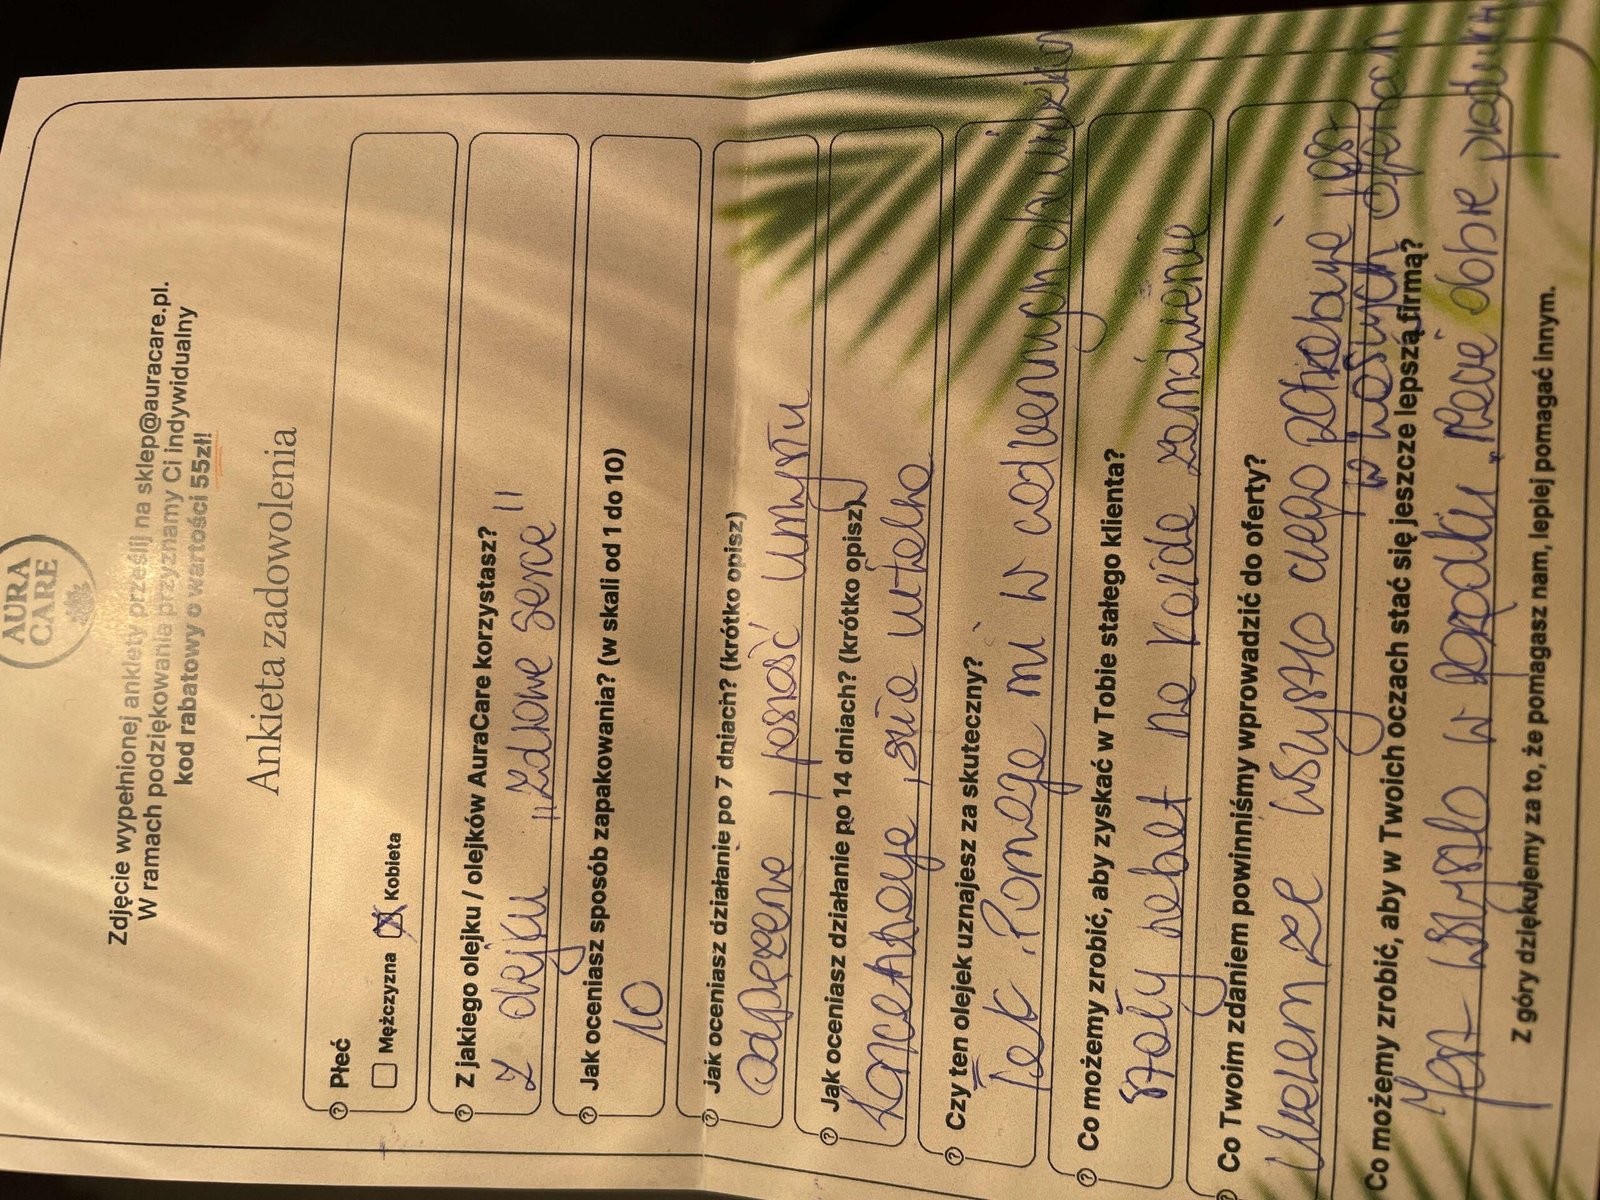 AURA
CARE
Zdjęcie wypełnionej ankiety prześlij na sklep@auracare.pl.
W ramach podziękowania przyznamy Ci indywidualny
kod rabatowy o wartości 55zł!
Ankieta zadowolenia
Płeć
Mężczyzna Kobieta
Z jakiego olejku / olejków AuraCare korzystasz?
z olejku „Zdrowe Serce"
Jak oceniasz sposób zapakowania? (w skali od 1 do 10)
10
Jak oceniasz działanie po 7 dniach? (krótko opisz)
odprężenie, jasność umysłu
Jak oceniasz działanie po 14 dniach? (krótko opisz)
koncentracja,
Czy ten olejek uznajesz za skuteczny?
Tak. Pomaga mi w codziennych
Co możemy zrobić, aby zyskać w Tobie stałego klienta?
stały rabat na każde zamówienie
Co Twoim zdaniem powinniśmy wprowadzić do oferty?
Uważam że wszystko czego potrzebuję jest
w waszych ofertach
Co możemy zrobić, aby w Twoich oczach stać się jeszcze lepszą firmą?
Jest wszystko w porządku. Macie dobre produkty
Z góry dziękujemy za to, że pomagasz nam, lepiej pomagać innym.